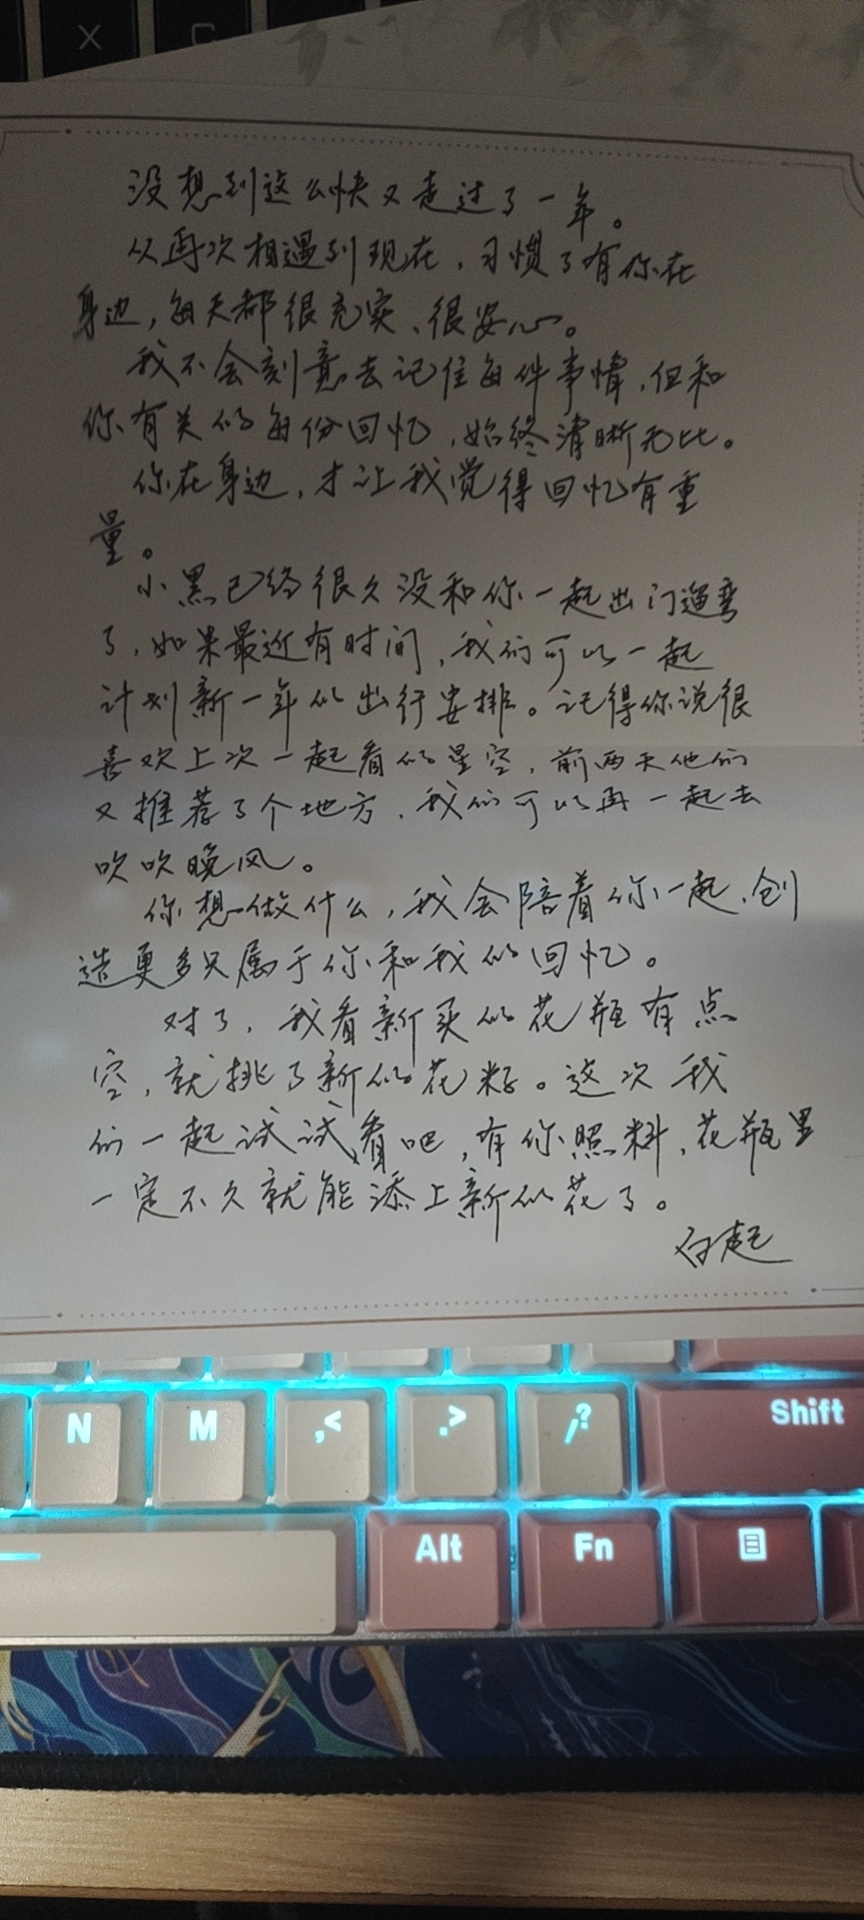 X C
没想到这么快又走过了一年。
从再次相遇到现在，习惯了有你在
身边，每天都很充实、很安心。
我不会刻意去记住每件事情，但和
你有关的每份回忆，始终清晰无比。
你在身边，才让我觉得回忆有重
量。
小黑已经很久没和你一起出门遛弯
了，如果最近有时间，我们可以一起
计划新一年的出行安排。记得你说很
喜欢上次一起看的星空，前两天他们
又推荐了个地方，我们可以再一起去
吹吹晚风。
你想做什么，我会陪着你一起，创
造更多只属于你和我的回忆。
对了，我看新买的花瓶有点
空，就挑了新的花籽。这次我
们一起试试看吧，有你照料，花瓶里
一定不久就能添上新的花了。
白起
N M ,< .> /? Shift
Alt Fn